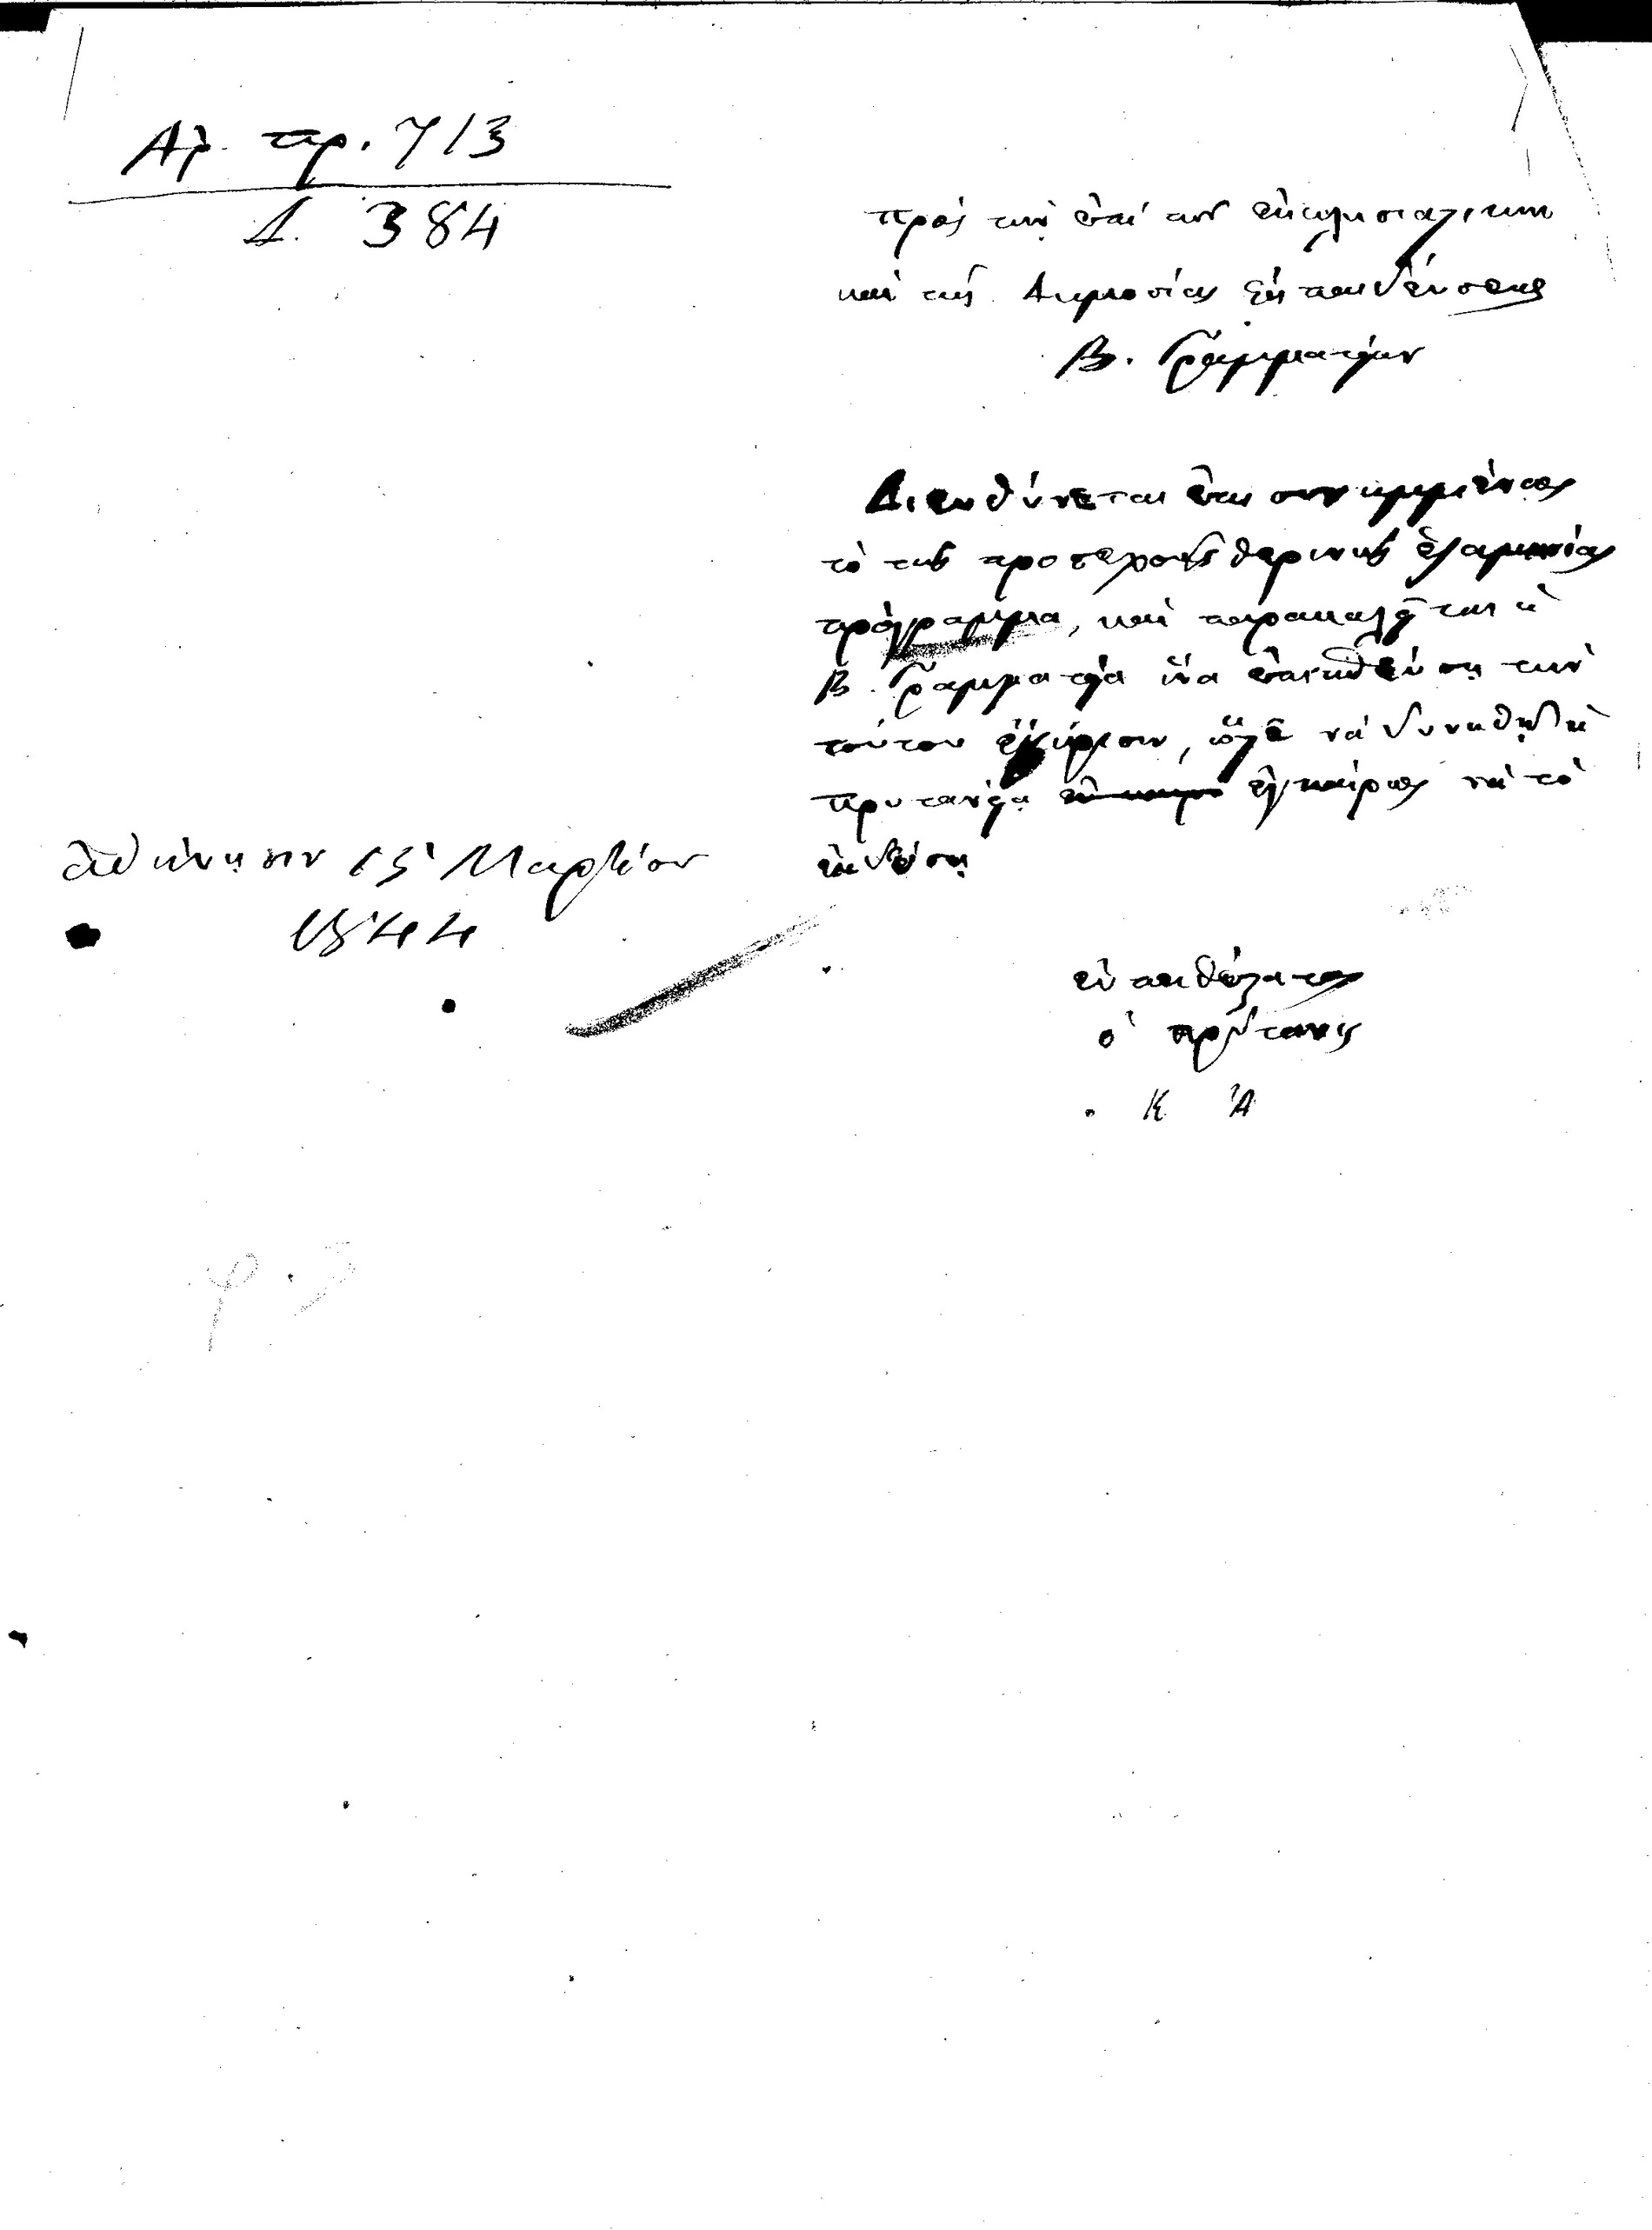 Ἀρ. πρ. 713
Δ. 384
Πρὸς τὴν ἐπὶ τῶν ἐκκλησιαστικῶν
καὶ τῆς Δημοσίας Ἐκπαιδεύσεως
Β. Γραμματείαν
Διευθύνεται ἐπισυνημμένως
τὸ τῆς προσεχοῦς θερινῆς ἑξαμηνίας
πρόγραμμα, καὶ παρακαλεῖται ἡ
Β. Γραμματεία ἵνα ἐπισπεύσῃ τὴν
τούτου ἔγκρισιν, ὥστε νὰ δυνηθῇ ἡ
Πρυτανεία ἐγκαίρως νὰ τὸ
ἐκδόσῃ
Ἀθήνησιν 15 Μαρτίου
1844
εὐπειθέστατος
ὁ Πρύτανις
Κ Ἀ